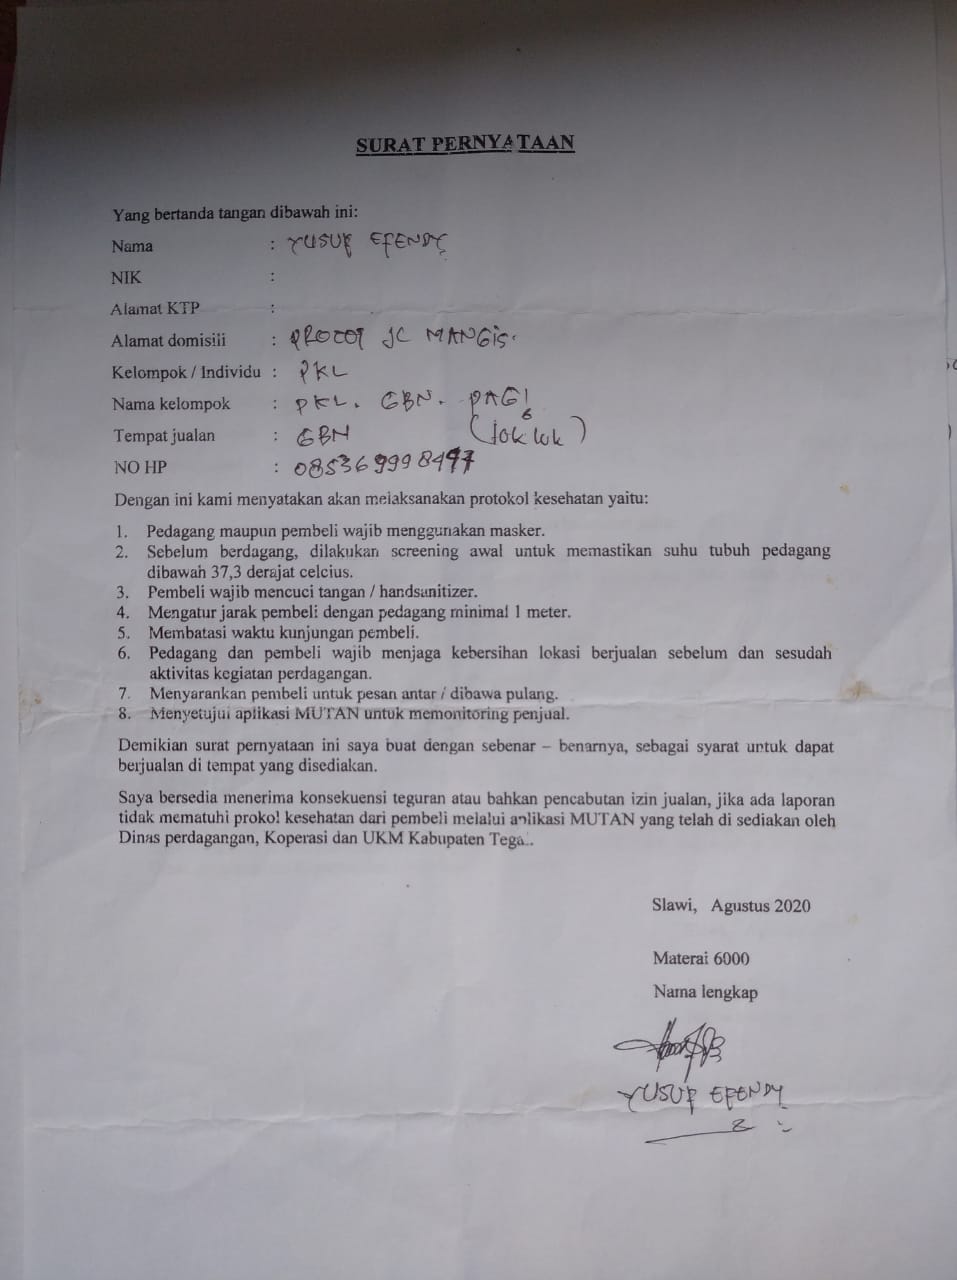 SURAT PERNYATAAN
Yang bertanda tangan dibawah ini:
Nama : YUSUF EFENDY
NIK :
Alamat KTP :
Alamat domisili : PROCOT JL MANGIS.
Kelompok / Individu : PKL
Nama kelompok : PKL. GBN. PAGI
Tempat jualan : GBN (lok lok)
NO HP :
Dengan ini kami menyatakan akan melaksanakan protokol kesehatan yaitu:
1. Pedagang maupun pembeli wajib menggunakan masker.
2. Sebelum berdagang, dilakukan screening awal untuk memastikan suhu tubuh pedagang
dibawah 37,3 derajat celcius.
3. Pembeli wajib mencuci tangan / handsanitizer.
4. Mengatur jarak pembeli dengan pedagang minimal 1 meter.
5. Membatasi waktu kunjungan pembeli.
6. Pedagang dan pembeli wajib menjaga kebersihan lokasi berjualan sebelum dan sesudah
aktivitas kegiatan perdagangan.
7. Menyarankan pembeli untuk pesan antar / dibawa pulang.
8. Menyetujui aplikasi MUTAN untuk memonitoring penjual.
Demikian surat pernyataan ini saya buat dengan sebenar – benarnya, sebagai syarat untuk dapat
berjualan di tempat yang disediakan.
Saya bersedia menerima konsekuensi teguran atau bahkan pencabutan izin jualan, jika ada laporan
tidak mematuhi prokol kesehatan dari pembeli melalui aplikasi MUTAN yang telah di sediakan oleh
Dinas perdagangan, Koperasi dan UKM Kabupaten Tegal.
Slawi, Agustus 2020
Materai 6000
Nama lengkap
YUSUF EFENDY